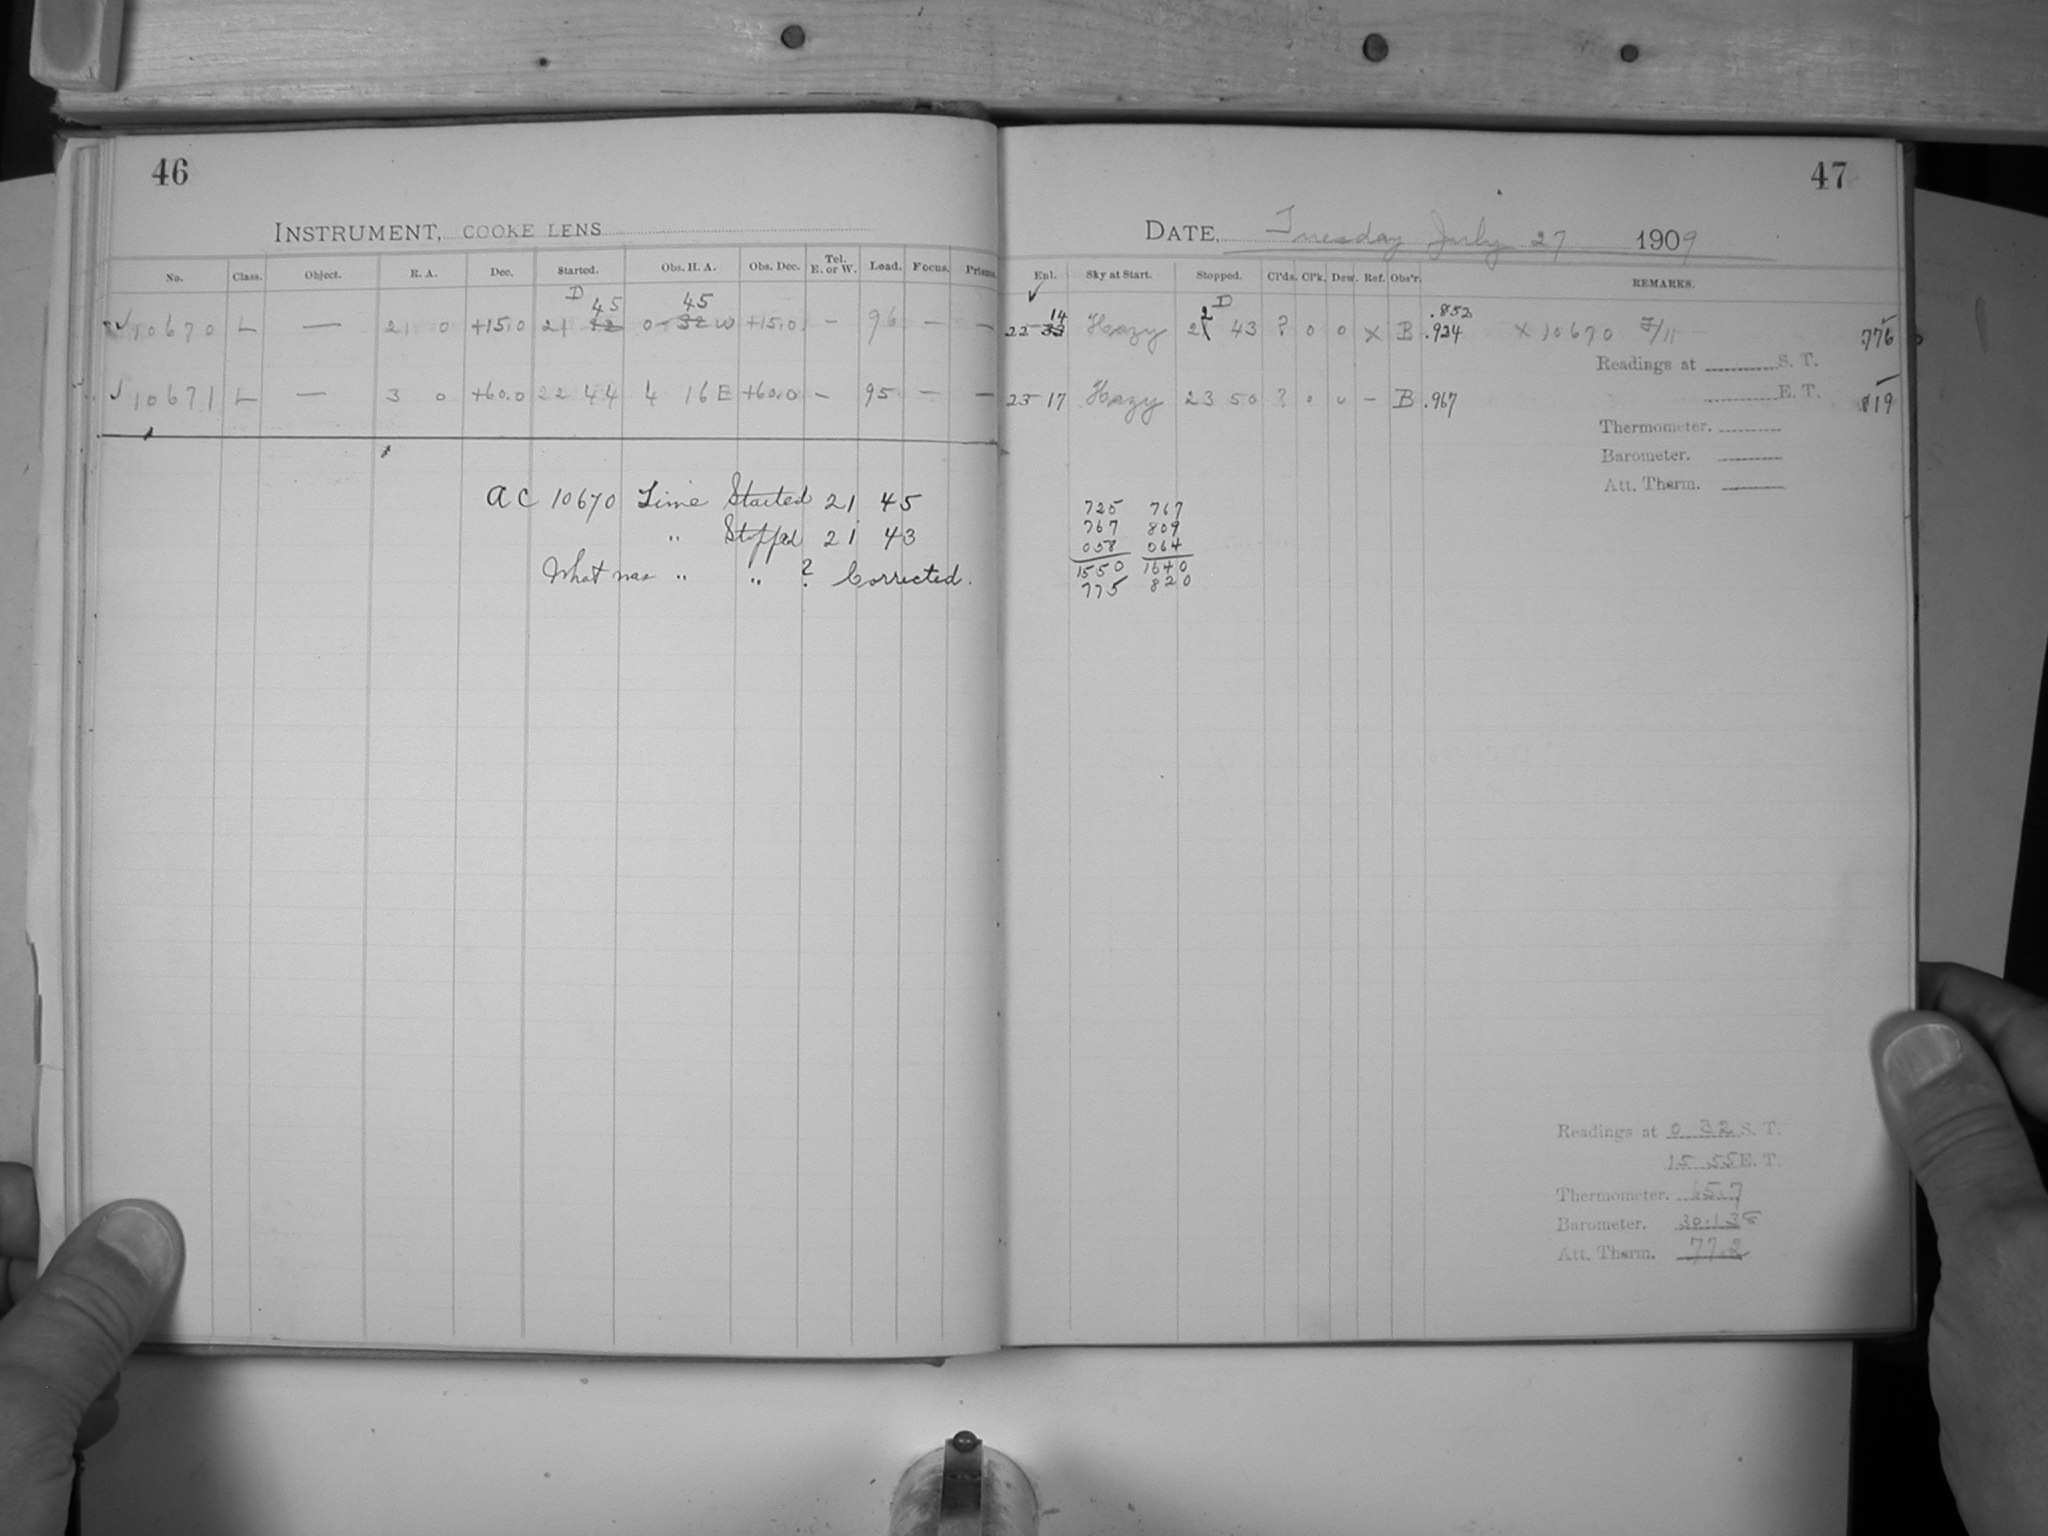 46
INSTRUMENT, COOKE LENS
No. Class. Object. R. A. Dec. Started. Obs. H. A. Obs. Dec. Tel. E. or W. Load. Focus. Prisms.
D 45 45
✓ 10670 L — 21 0 +15.0 21 0 W +15.0 - 96 — —
✓ 10671 L — 3 0 +60.0 22 44 4 16 E +60.0 - 95 — —
AC 10670 Time Started 21 45
" Stopped 21 43
What was " " ? Corrected.
47
DATE, Tuesday July 27 1909
Epl. Sky at Start. Stopped. Cl'ds. Cl'k. Dew. Ref. Obs'r. REMARKS.
✓ 14 2 D .852
22 33 Hazy 21 43 ? 0 0 x B .924 x 10670 776
Readings at S. T.
23 17 Hazy 23 50 ? 0 0 - B .967 E. T. 819
Thermometer.
Barometer.
Att. Therm.
725 767
767 809
058 064
1550 1640
775 820
Readings at 0 32 S. T.
15 55 E. T.
Thermometer. 65.7
Barometer. 30.138
Att. Therm. 77.2